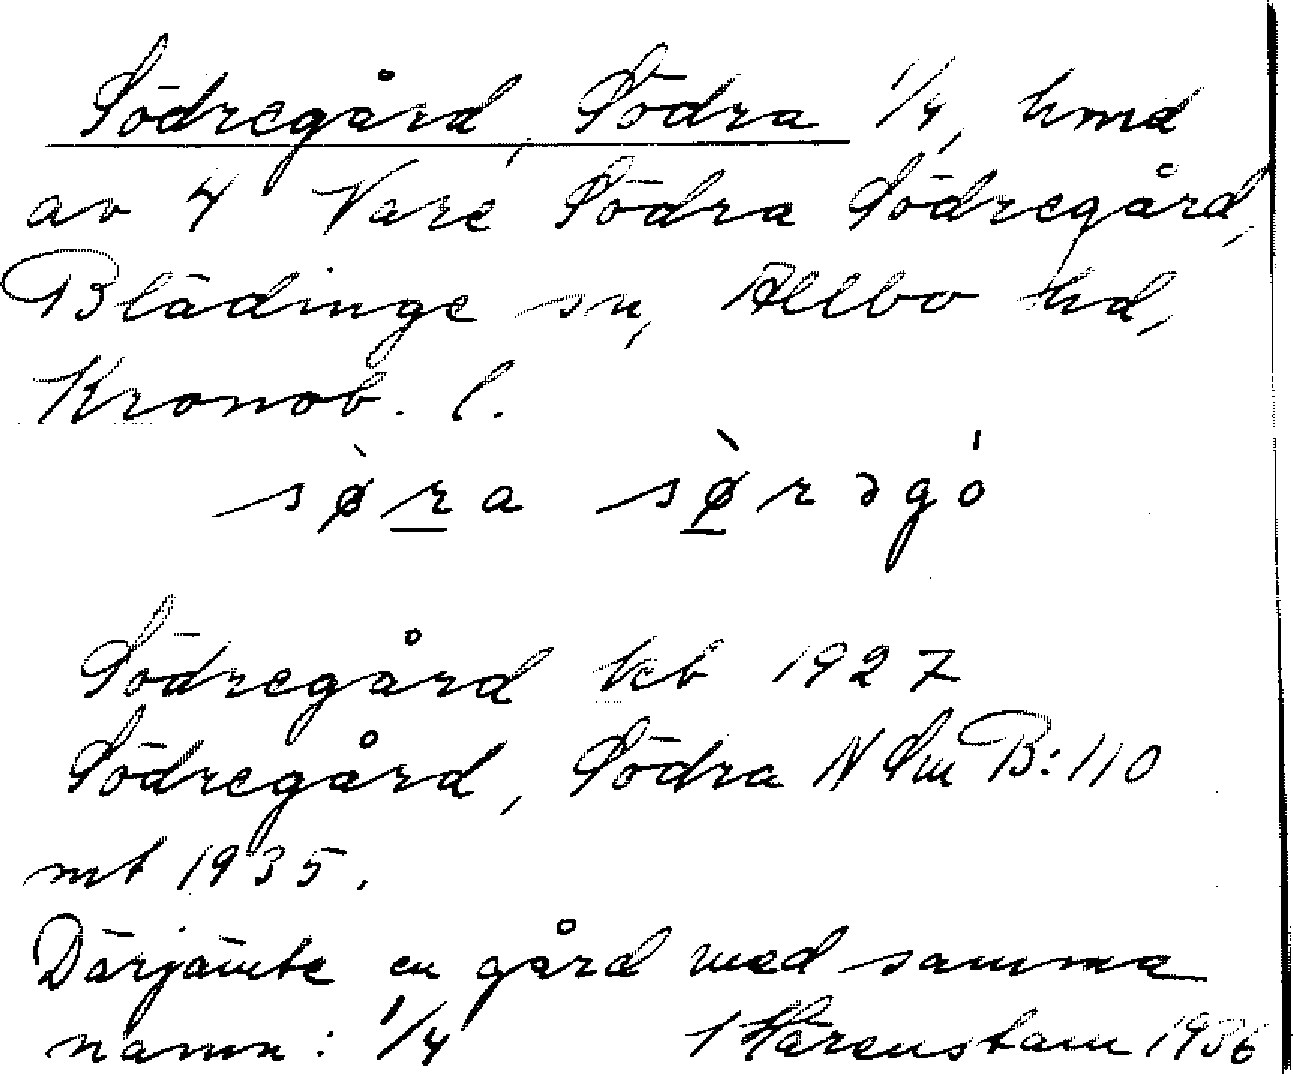 Södregård, Södra 1/4, hmd
av 4 Vare Södra Södregård,
Blädinge sn, Allbo hd,
Kronob. l.
sø̀ra sø̀rəgó
Södregård kb 1927
Södregård, Södra N Sm B:110
mt 1935.
Därjämte en gård med samma
namn: 1/4 I Härenstam 1936